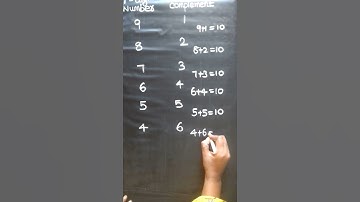 Number Complement
9 1 9+1=10
8 2 8+2=10
7 3 7+3=10
6 4 6+4=10
5 5 5+5=10
4 6 4+6=